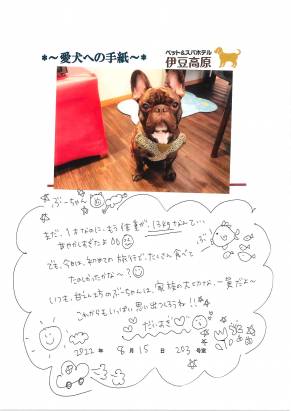 *～愛犬への手紙～*
ペット&スパホテル
伊豆高原
ぶーちゃん
まだ、1才なのに…もう体重が、13kgなんて…
甘やかしすぎたよ
でも、今日は、初めての旅行で、たくさん食べて
たのしかったかな～？
いつも、甘えん坊のぶーちゃんは、家族の大切な、一員だよ～
これからもいっぱい思い出つくろうね!!
だいすき
2022年 8月 15日 203号室